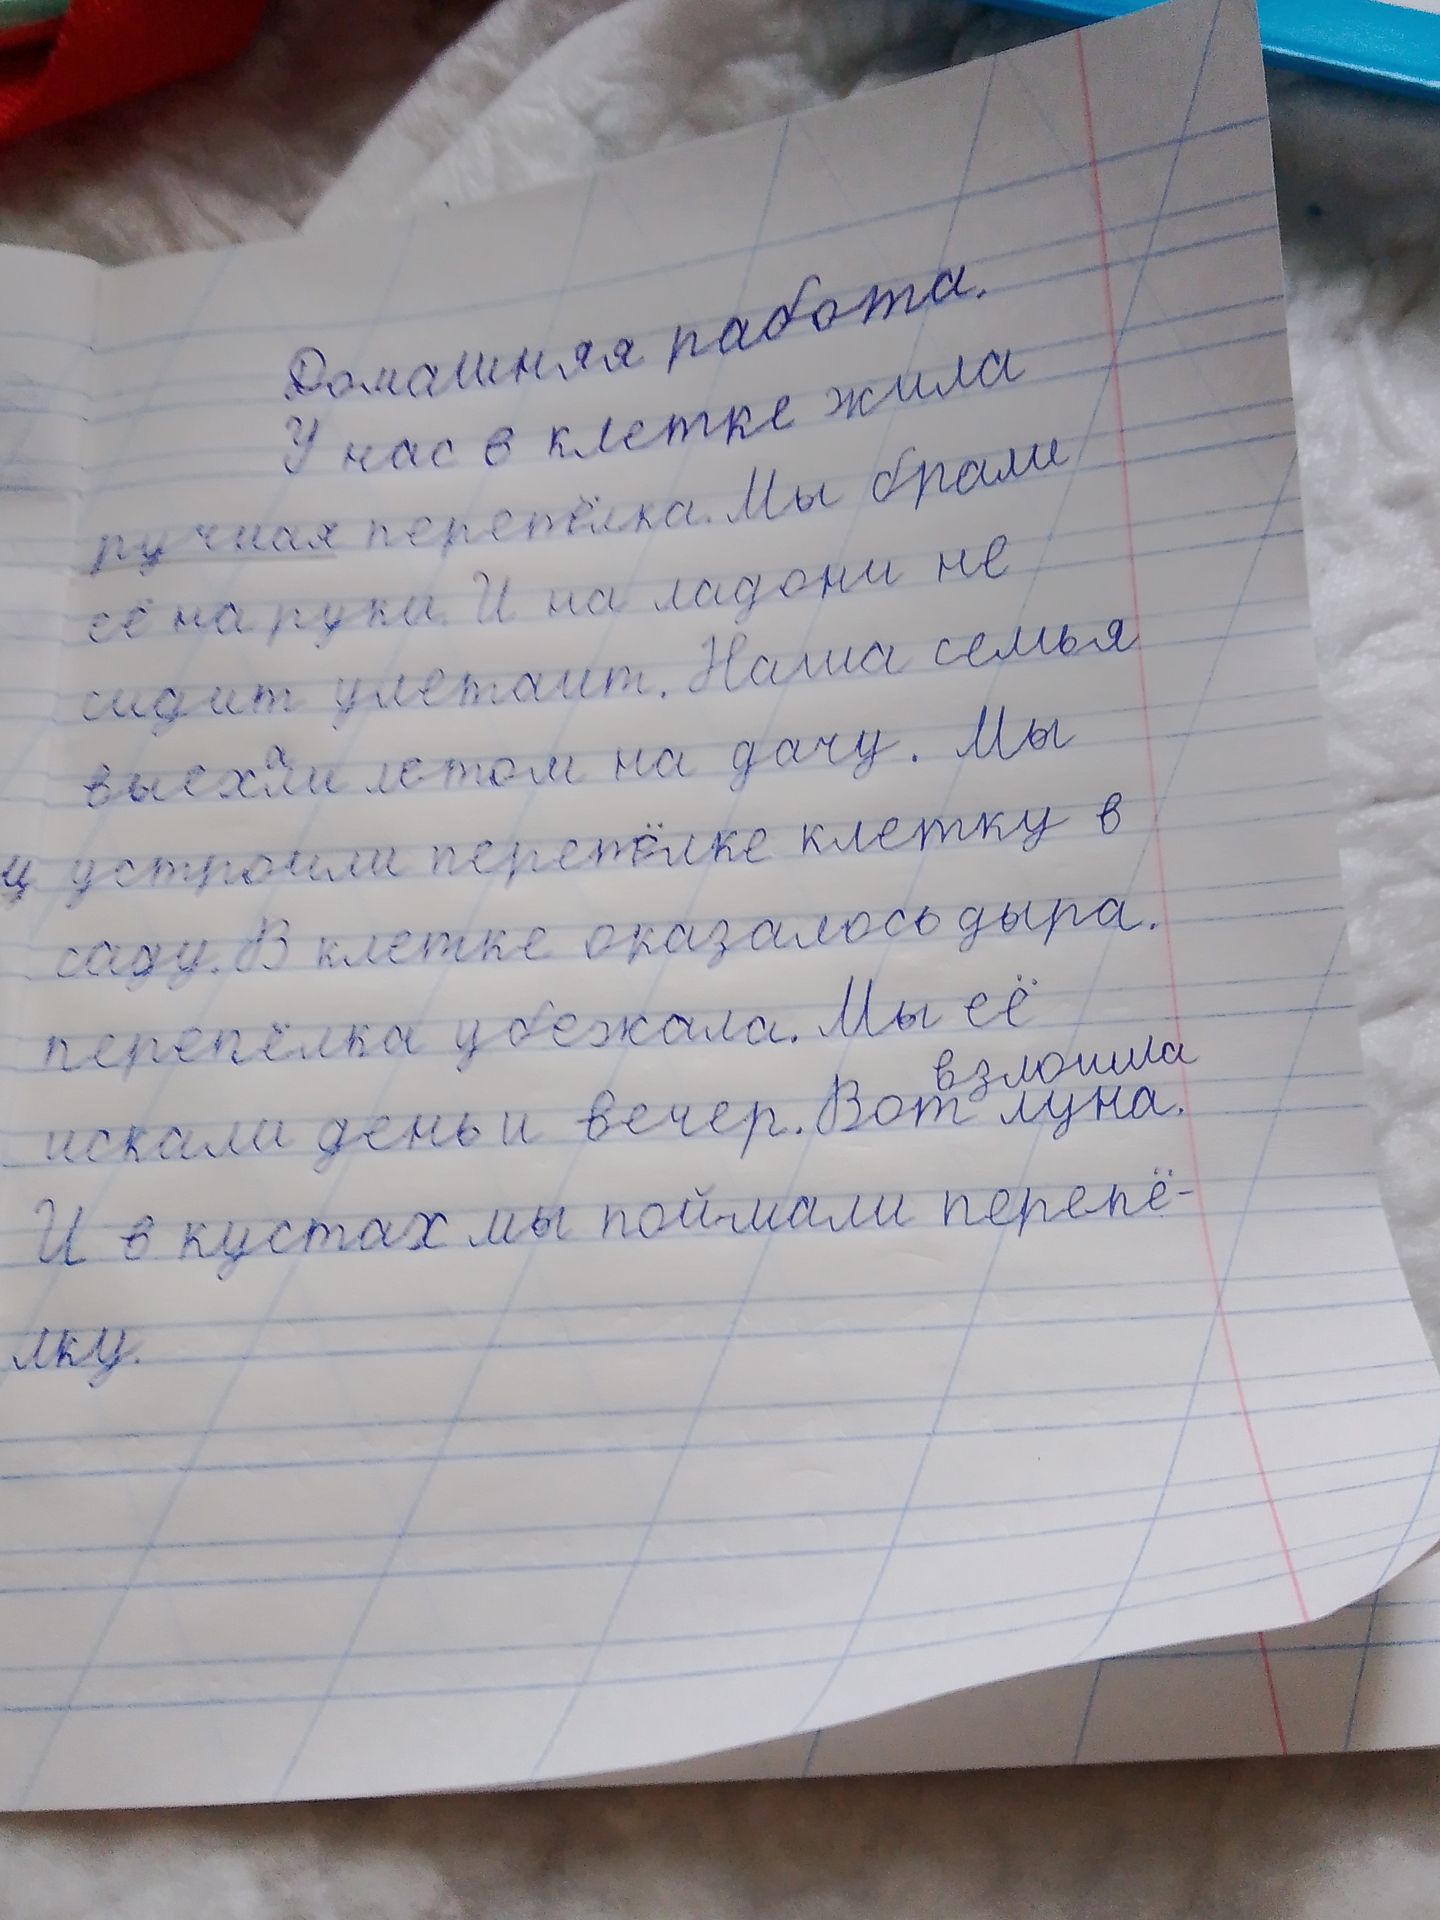 Домашняя работа.
У нас в клетке жила
ручная перепёлка. Мы брали
её на руки. И на ладони не
сидит улетаит. Наша семья
выехали летом на дачу. Мы
устроили перепёлке клетку в
саду. В клетке оказалось дыра.
перепёлка убежала. Мы её
взлошла
искали день и вечер. Вот луна.
И в кустах мы поймали перепё-
лку.